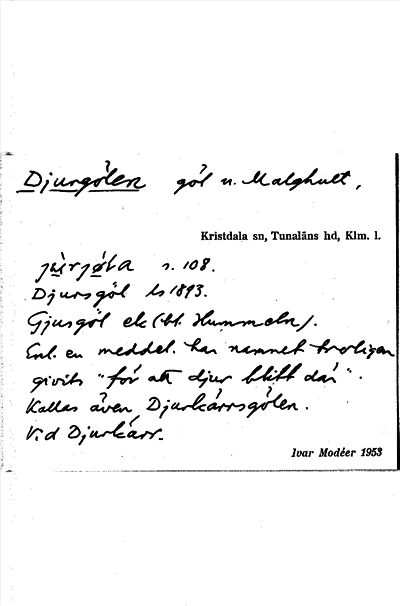 Djurgölen göl n. Malghult,
Kristdala sn, Tunaläns hd, Klm. l.
s. 108.
Djursgöl ls 1893.
Gjusgöl ek (bl. Hummeln).
Enl. en meddel. har namnet troligen
givits "för att djur blitt där".
Kallas även Djurkärrsgölen.
Vid Djurkärr.
Ivar Modéer 1953